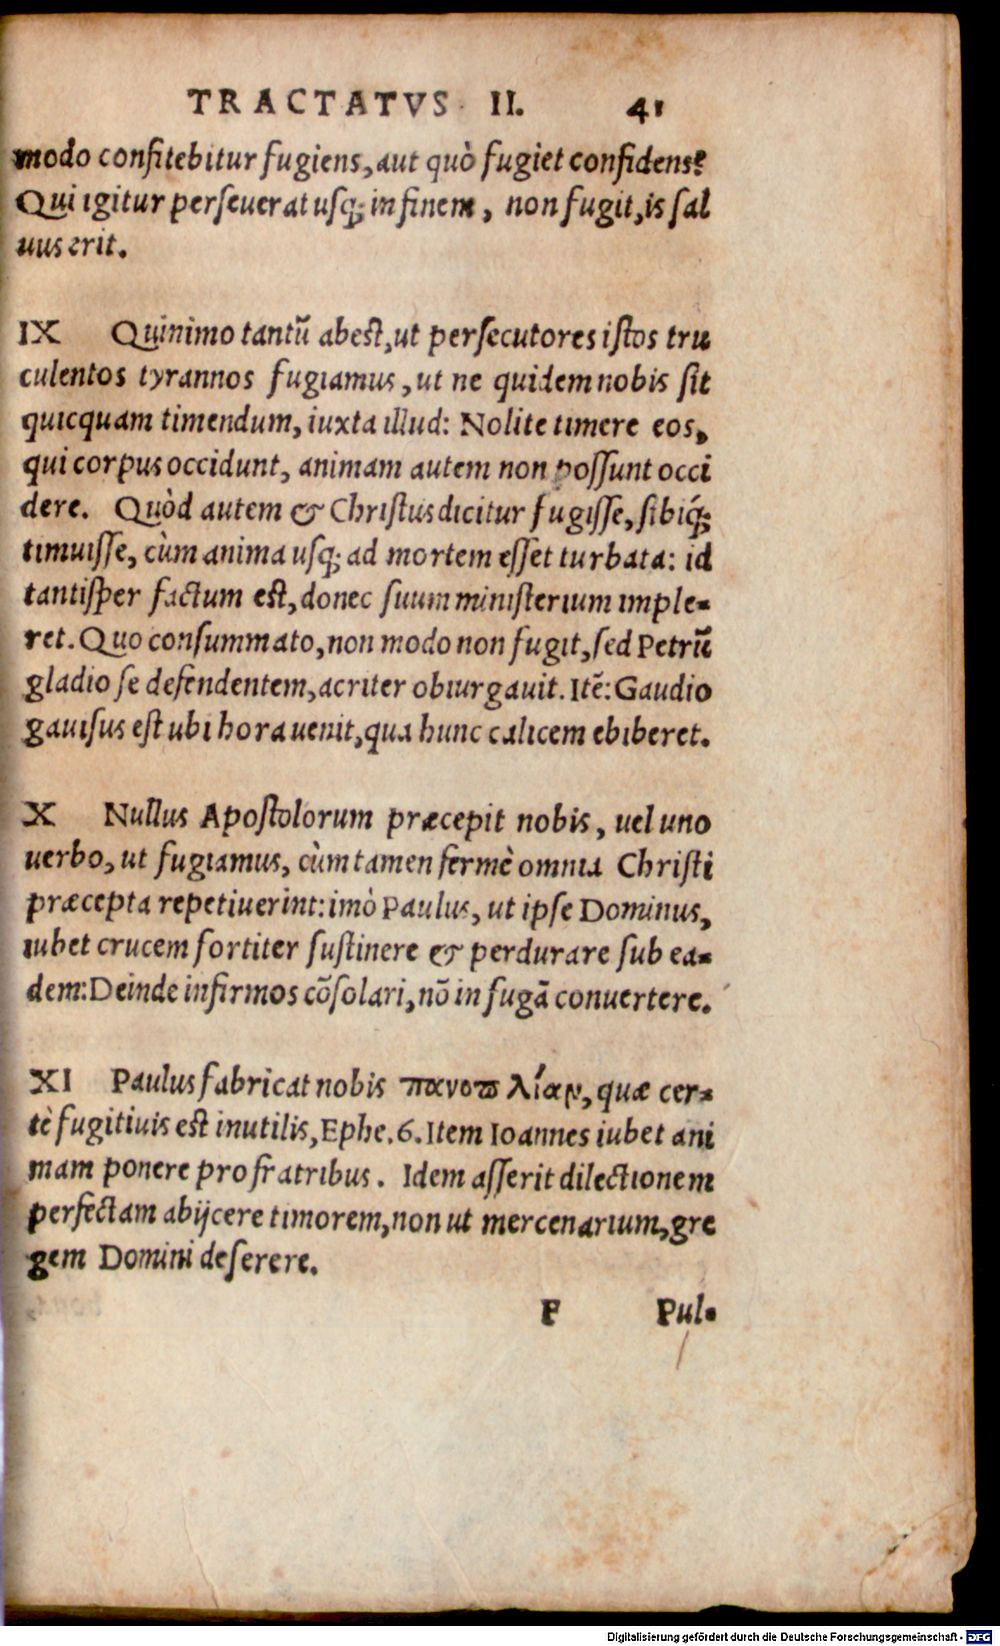 TRACTATVS II. 41
modo confitebitur fugiens, aut quò fugiet confidens?
Qui igitur perseuerat usq; in finem, non fugit, is sal
uus erit.
IX Quinimo tantū abest, ut persecutores istos tru
culentos tyrannos fugiamus, ut ne quidem nobis sit
quicquam timendum, iuxta illud: Nolite timere eos,
qui corpus occidunt, animam autem non possunt occi
dere. Quòd autem & Christus dicitur fugisse, sibiq́;
timuisse, cùm anima usq; ad mortem esset turbata: id
tantisper factum est, donec suum ministerium imple-
ret. Quo consummato, non modo non fugit, sed Petrū
gladio se defendentem, acriter obiurgauit. Itē: Gaudio
gauisus est ubi hora uenit, qua hunc calicem ebiberet.
X Nullus Apostolorum præcepit nobis, uel uno
uerbo, ut fugiamus, cùm tamen fermè omnia Christi
præcepta repetiuerint: imò Paulus, ut ipse Dominus,
iubet crucem fortiter sustinere & perdurare sub ea-
dem: Deinde infirmos cōsolari, nō in fugā conuertere.
XI Paulus fabricat nobis πανοπλίαν, quæ cer-
tè fugitiuis est inutilis, Ephe. 6. Item Ioannes iubet ani
mam ponere pro fratribus. Idem asserit dilectionem
perfectam abijcere timorem, non ut mercenarium, gre
gem Domini deserere.
F Pul-
Digitalisierung gefördert durch die Deutsche Forschungsgemeinschaft - DFG